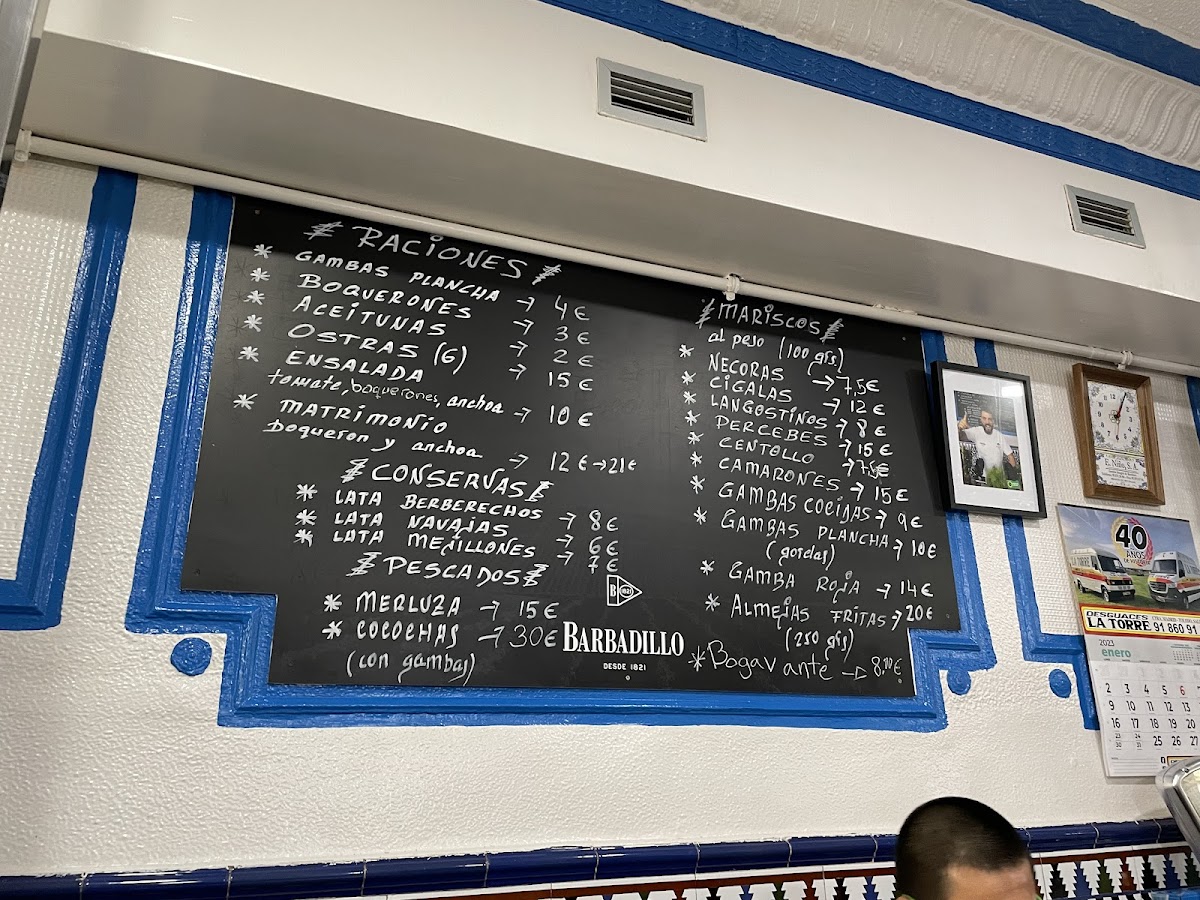 RACIONES
* GAMBAS PLANCHA → 4€
* BOQUERONES → 3€
* ACEITUNAS → 2€
* OSTRAS (6) → 15€
* ENSALADA
tomate, boquerones, anchoa → 10€
* MATRIMONIO
boqueron y anchoa → 12€→21€
CONSERVAS
* LATA BERBERECHOS → 8€
* LATA NAVAJAS → 6€
* LATA MEJILLONES → 7€
PESCADOS
* MERLUZA → 15€
* COCOCHAS → 30€
(con gambas)
B 1821
BARBADILLO
DESDE 1821
MARISCOS
al peso (100 grs.)
* NECORAS → 7,5€
* CIGALAS → 12€
* LANGOSTINOS → 8€
* PERCEBES → 15€
* CENTOLLO → 7,5€
* CAMARONES → 15€
* GAMBAS COCIDAS → 9€
* GAMBAS PLANCHA → 10€
(gordas)
* GAMBA ROJA → 14€
* ALMEJAS FRITAS → 20€
(250 grs)
* Bogavante → 8,00€
E. Niño, S.A.
40
AÑOS
LA TORRE
DESGUACES
LA TORRE 91 860 91
2023
enero
2 3 4 5 6
9 10 11 12 13
16 17 18 19 20
23 24 25 26 27
30 31